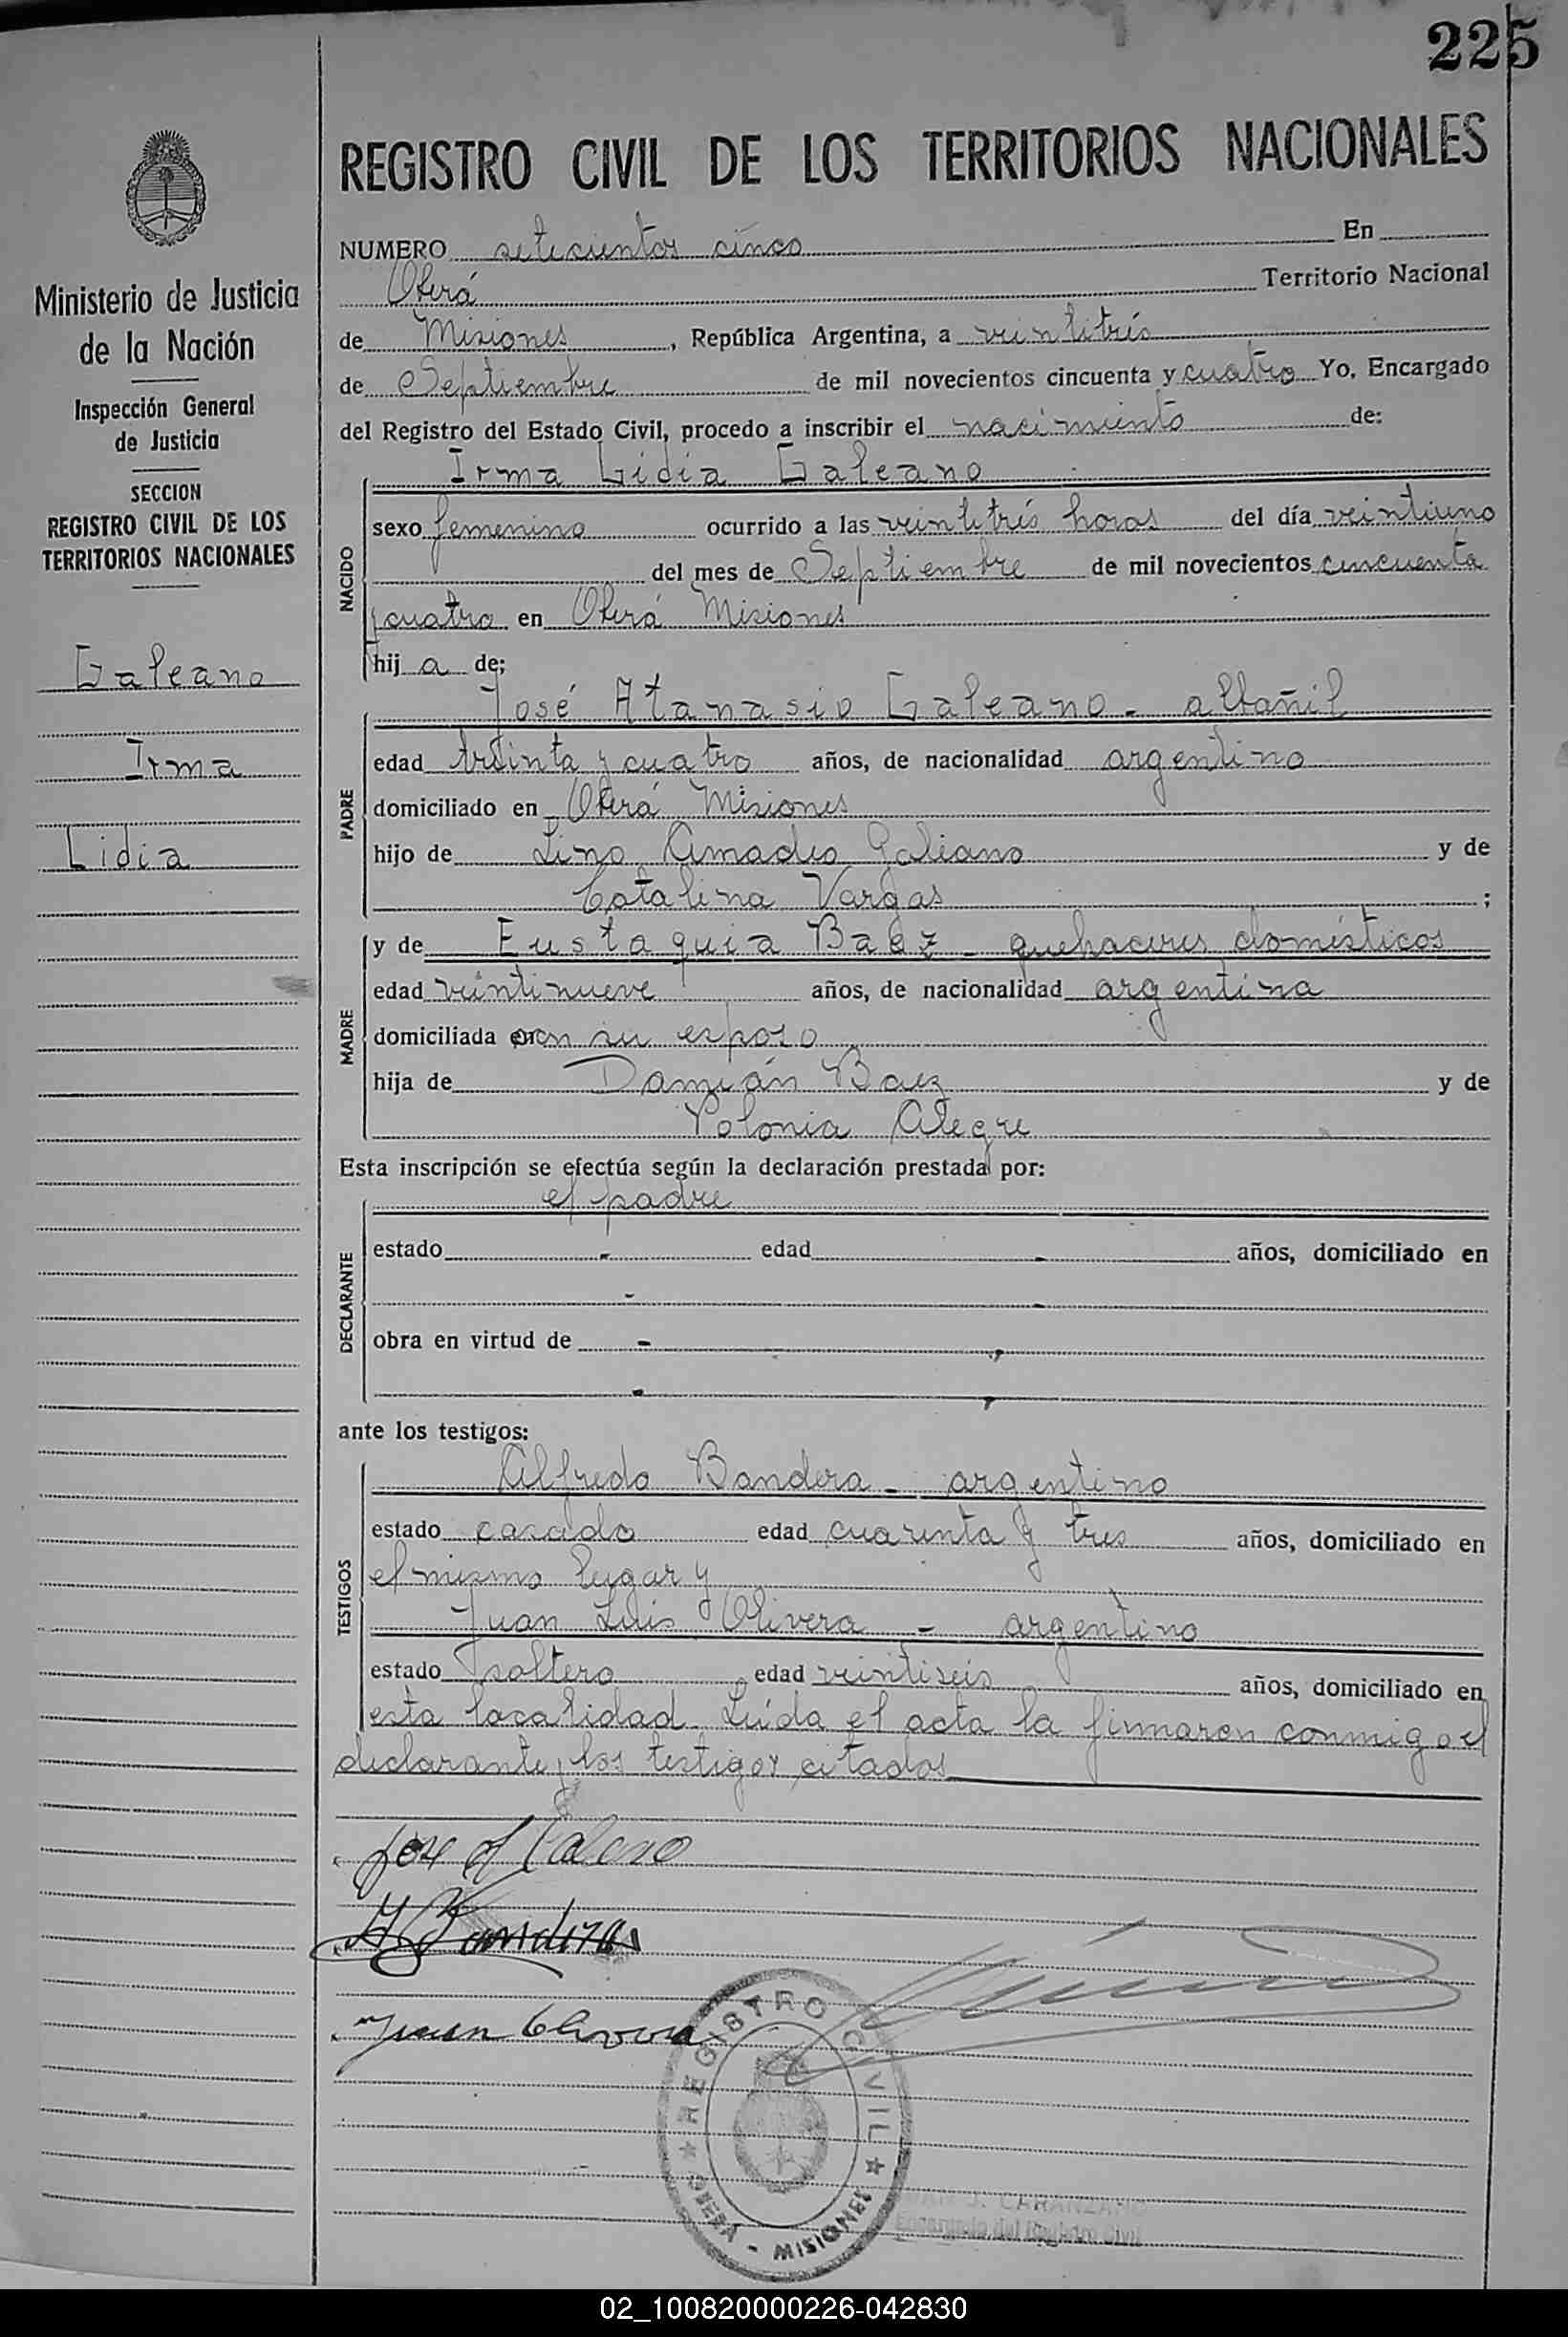 225
REGISTRO CIVIL DE LOS TERRITORIOS NACIONALES
Ministerio de Justicia
de la Nación
Inspección General
de Justicia
SECCION
REGISTRO CIVIL DE LOS
TERRITORIOS NACIONALES
Galeano
Irma
Lidia
NUMERO setecientos cinco En
Oberá Territorio Nacional
de Misiones, República Argentina, a veintitrés
de Septiembre de mil novecientos cincuenta y cuatro Yo, Encargado
del Registro del Estado Civil, procedo a inscribir el nacimiento de:
NACIDO
Irma Lidia Galeano
sexo femenino ocurrido a las veintitrés horas del día veintiuno
del mes de Septiembre de mil novecientos cincuenta
y cuatro en Oberá Misiones
hija de;
PADRE
José Atanasio Galeano - albañil
edad treinta y cuatro años, de nacionalidad argentino
domiciliado en Oberá Misiones
hijo de Lino Amadeo Galiano y de
Catalina Vargas ;
MADRE
y de Eustaquia Baez - quehaceres domésticos
edad veintinueve años, de nacionalidad argentina
domiciliada con su esposo
hija de Damián Baez y de
Polonia Alegre
Esta inscripción se efectúa según la declaración prestada por:
DECLARANTE
el padre
estado - edad - años, domiciliado en
- -
obra en virtud de -
-
ante los testigos:
TESTIGOS
Alfredo Bandera - argentino
estado casado edad cuarenta y tres años, domiciliado en
el mismo lugar y
Juan Luis Olivera - argentino
estado soltero edad veintiseis años, domiciliado en
esta localidad. Leída el acta la firmaron conmigo el
declarante y los testigos citados
Jose A Galeano
A Bandera
Juan Olivera
REGISTRO CIVIL
OBERÁ - MISIONES
JUAN J. CARANZANO
Encargado del Registro Civil
02_100820000226-042830